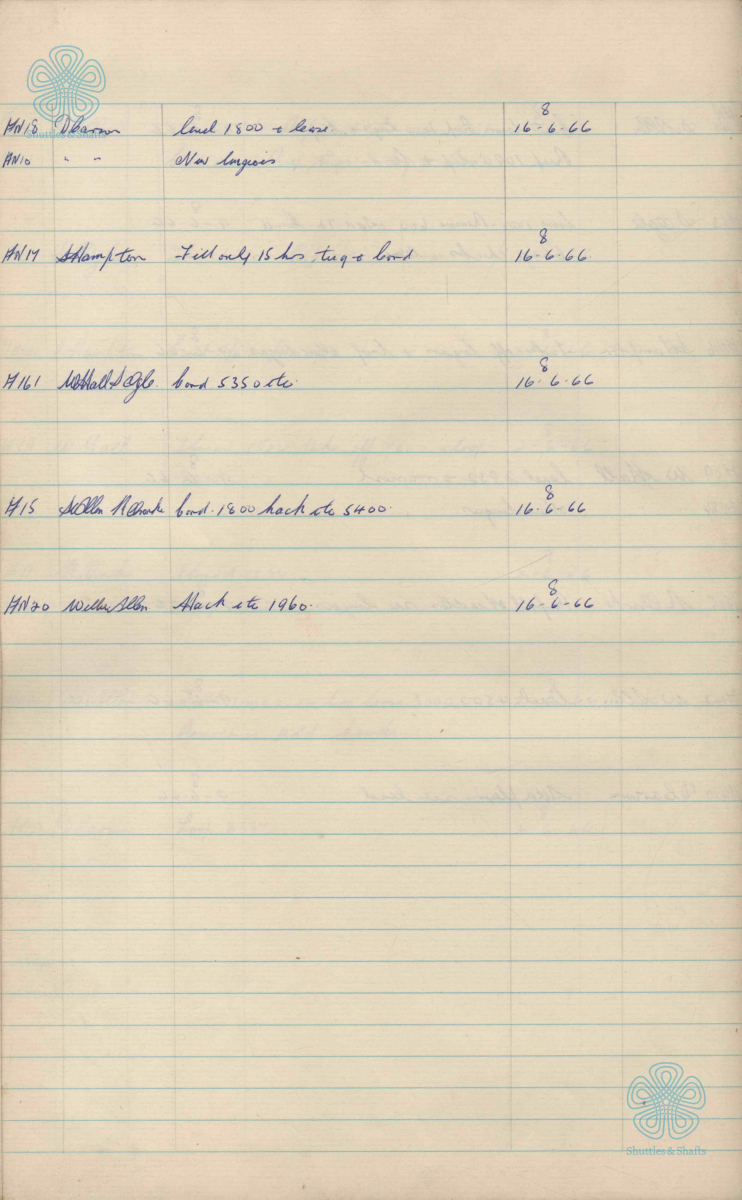 Shuttles & Shafts
8
HN18 D Carson lead 1800 + lease. 16-6-66
HN10 " " New
8
HN17 S Hampton Fill only 15 hrs, tug + bond 16-6-66.
8
H161 W Hall S Ogle bond 5350 etc. 16-6-66
8
H15 S Allen bond. 1800 hack etc 5400. 16-6-66
8
HN20 Willie Allen Hack etc 1960. 16-6-66
Shuttles & Shafts